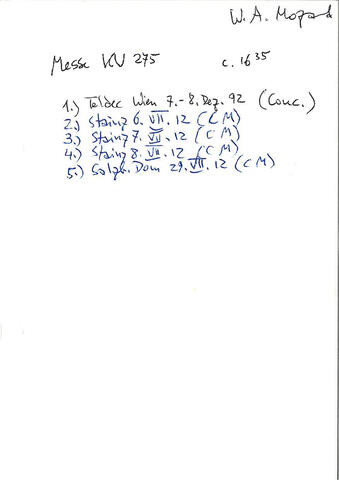 W. A. Mozart
Messe KV 275 c. 16 35
1.) Teldec Wien 7.-8. Dez. 92 (Conc.)
2.) Stainz 6. VII. 12 (CM)
3.) Stainz 7. VII. 12 (CM)
4.) Stainz 8. VII. 12 (CM)
5.) Salzb. Dom 29. VII. 12 (CM)